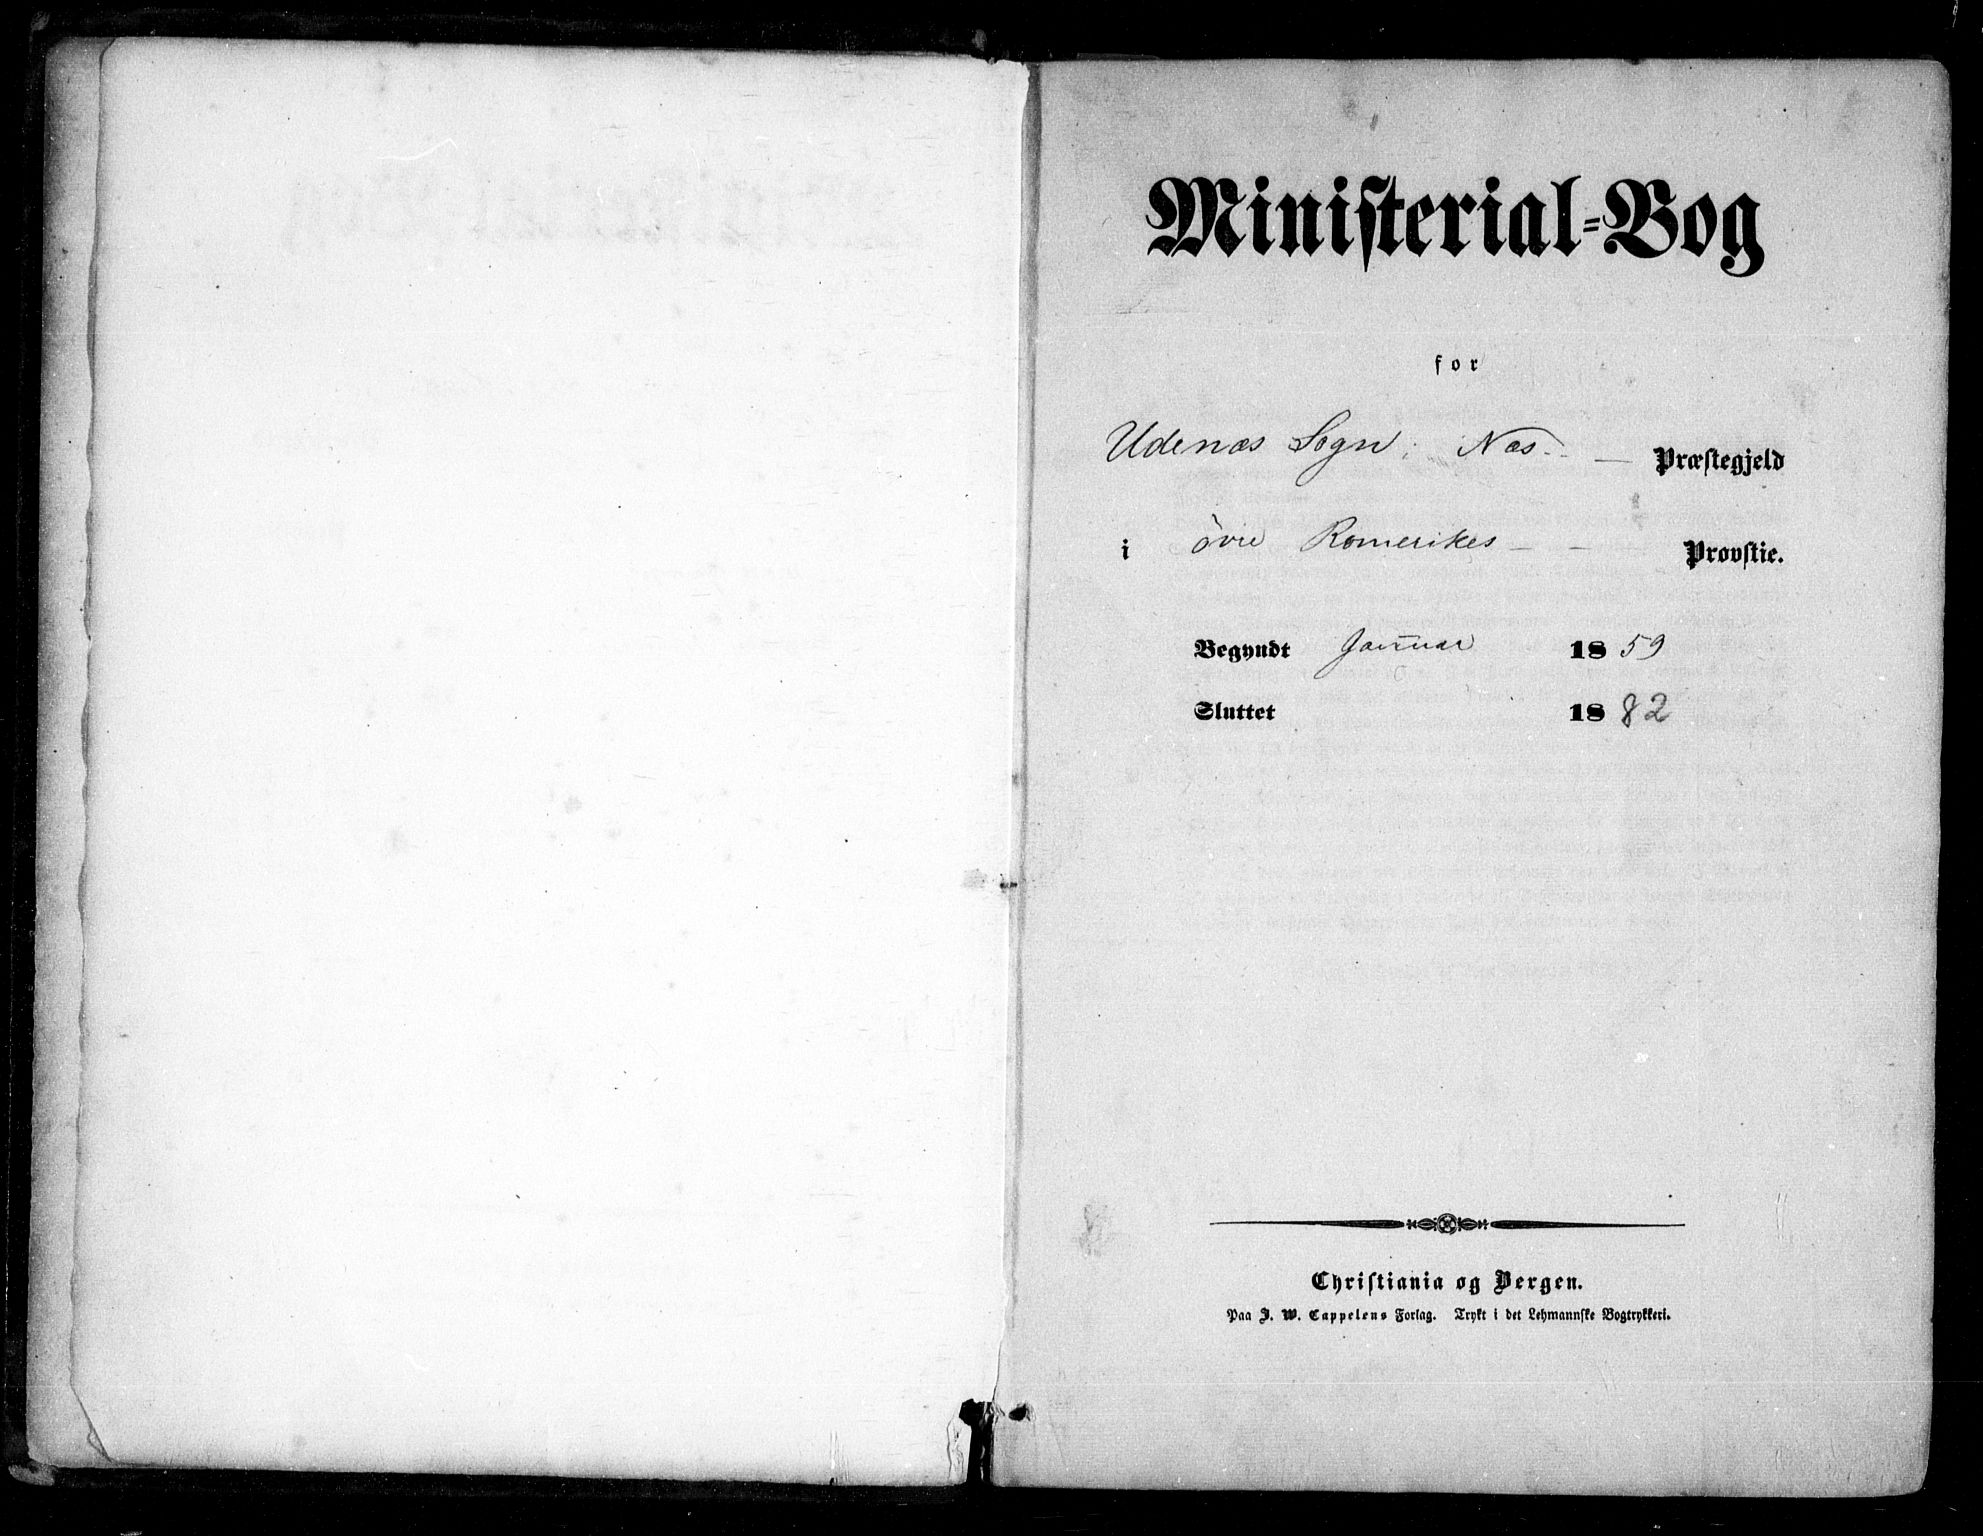 Ministerial-Bog
for
Udenæs Sogn, Næs Præstegjeld
i øvre Romerikes Provstie.
Begyndt Januar 1859
Sluttet 1882
Christiania og Bergen.
Paa J. W. Cappelens Forlag. Trykt i det Lehmannske Bogtrykkeri.